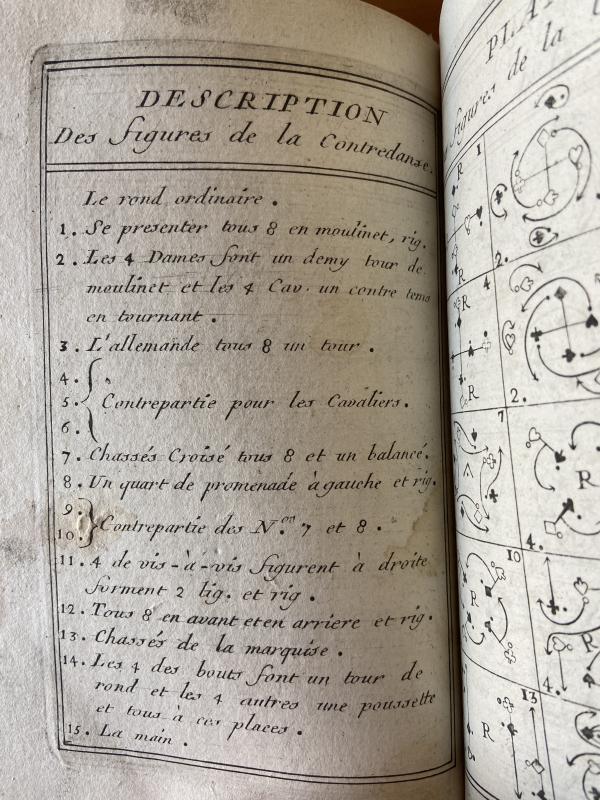 DESCRIPTION
Des figures de la Contredanse.
Le rond ordinaire.
1. Se presenter tous 8 en moulinet, rig.
2. Les 4 Dames font un demy tour de
moulinet et les 4 Cav. un contre tems
en tournant.
3. L'allemande tous 8 un tour.
4.
5. Contrepartie pour les Cavaliers.
6.
7. Chassés Croisé tous 8 et un balancé.
8. Un quart de promenade à gauche et rig.
9.
10. Contrepartie des N.os 7 et 8.
11. 4 de vis-à-vis figurent à droite
forment 2 lig. et rig.
12. Tous 8 en avant et en arriere et rig.
13. Chassés de la marquise.
14. Les 4 des bouts font un tour de
rond et les 4 autres une poussette
et tous à ces places.
15. La main.
figures de la
R 1
2.
R
R 4
R
2.
7
R
4.
10
R
4.
13
R